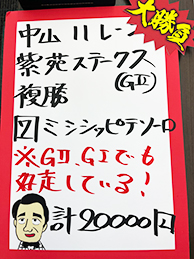 大勝負
中山11レース
紫苑ステークス
(GⅡ)
複勝
7 ミシシッピテソーロ
※GⅡ、GⅠでも
好走している!
計20000円